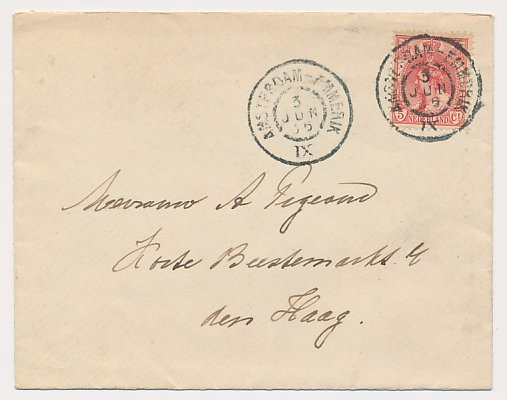 AMSTERDAM-EMMERIK
3
JUN
IX
AMSTERDAM-EMMERIK
3
JUN
IX
5 NEDERLAND Ct
Mevrouw A
Korte Beestemarkt
den Haag.